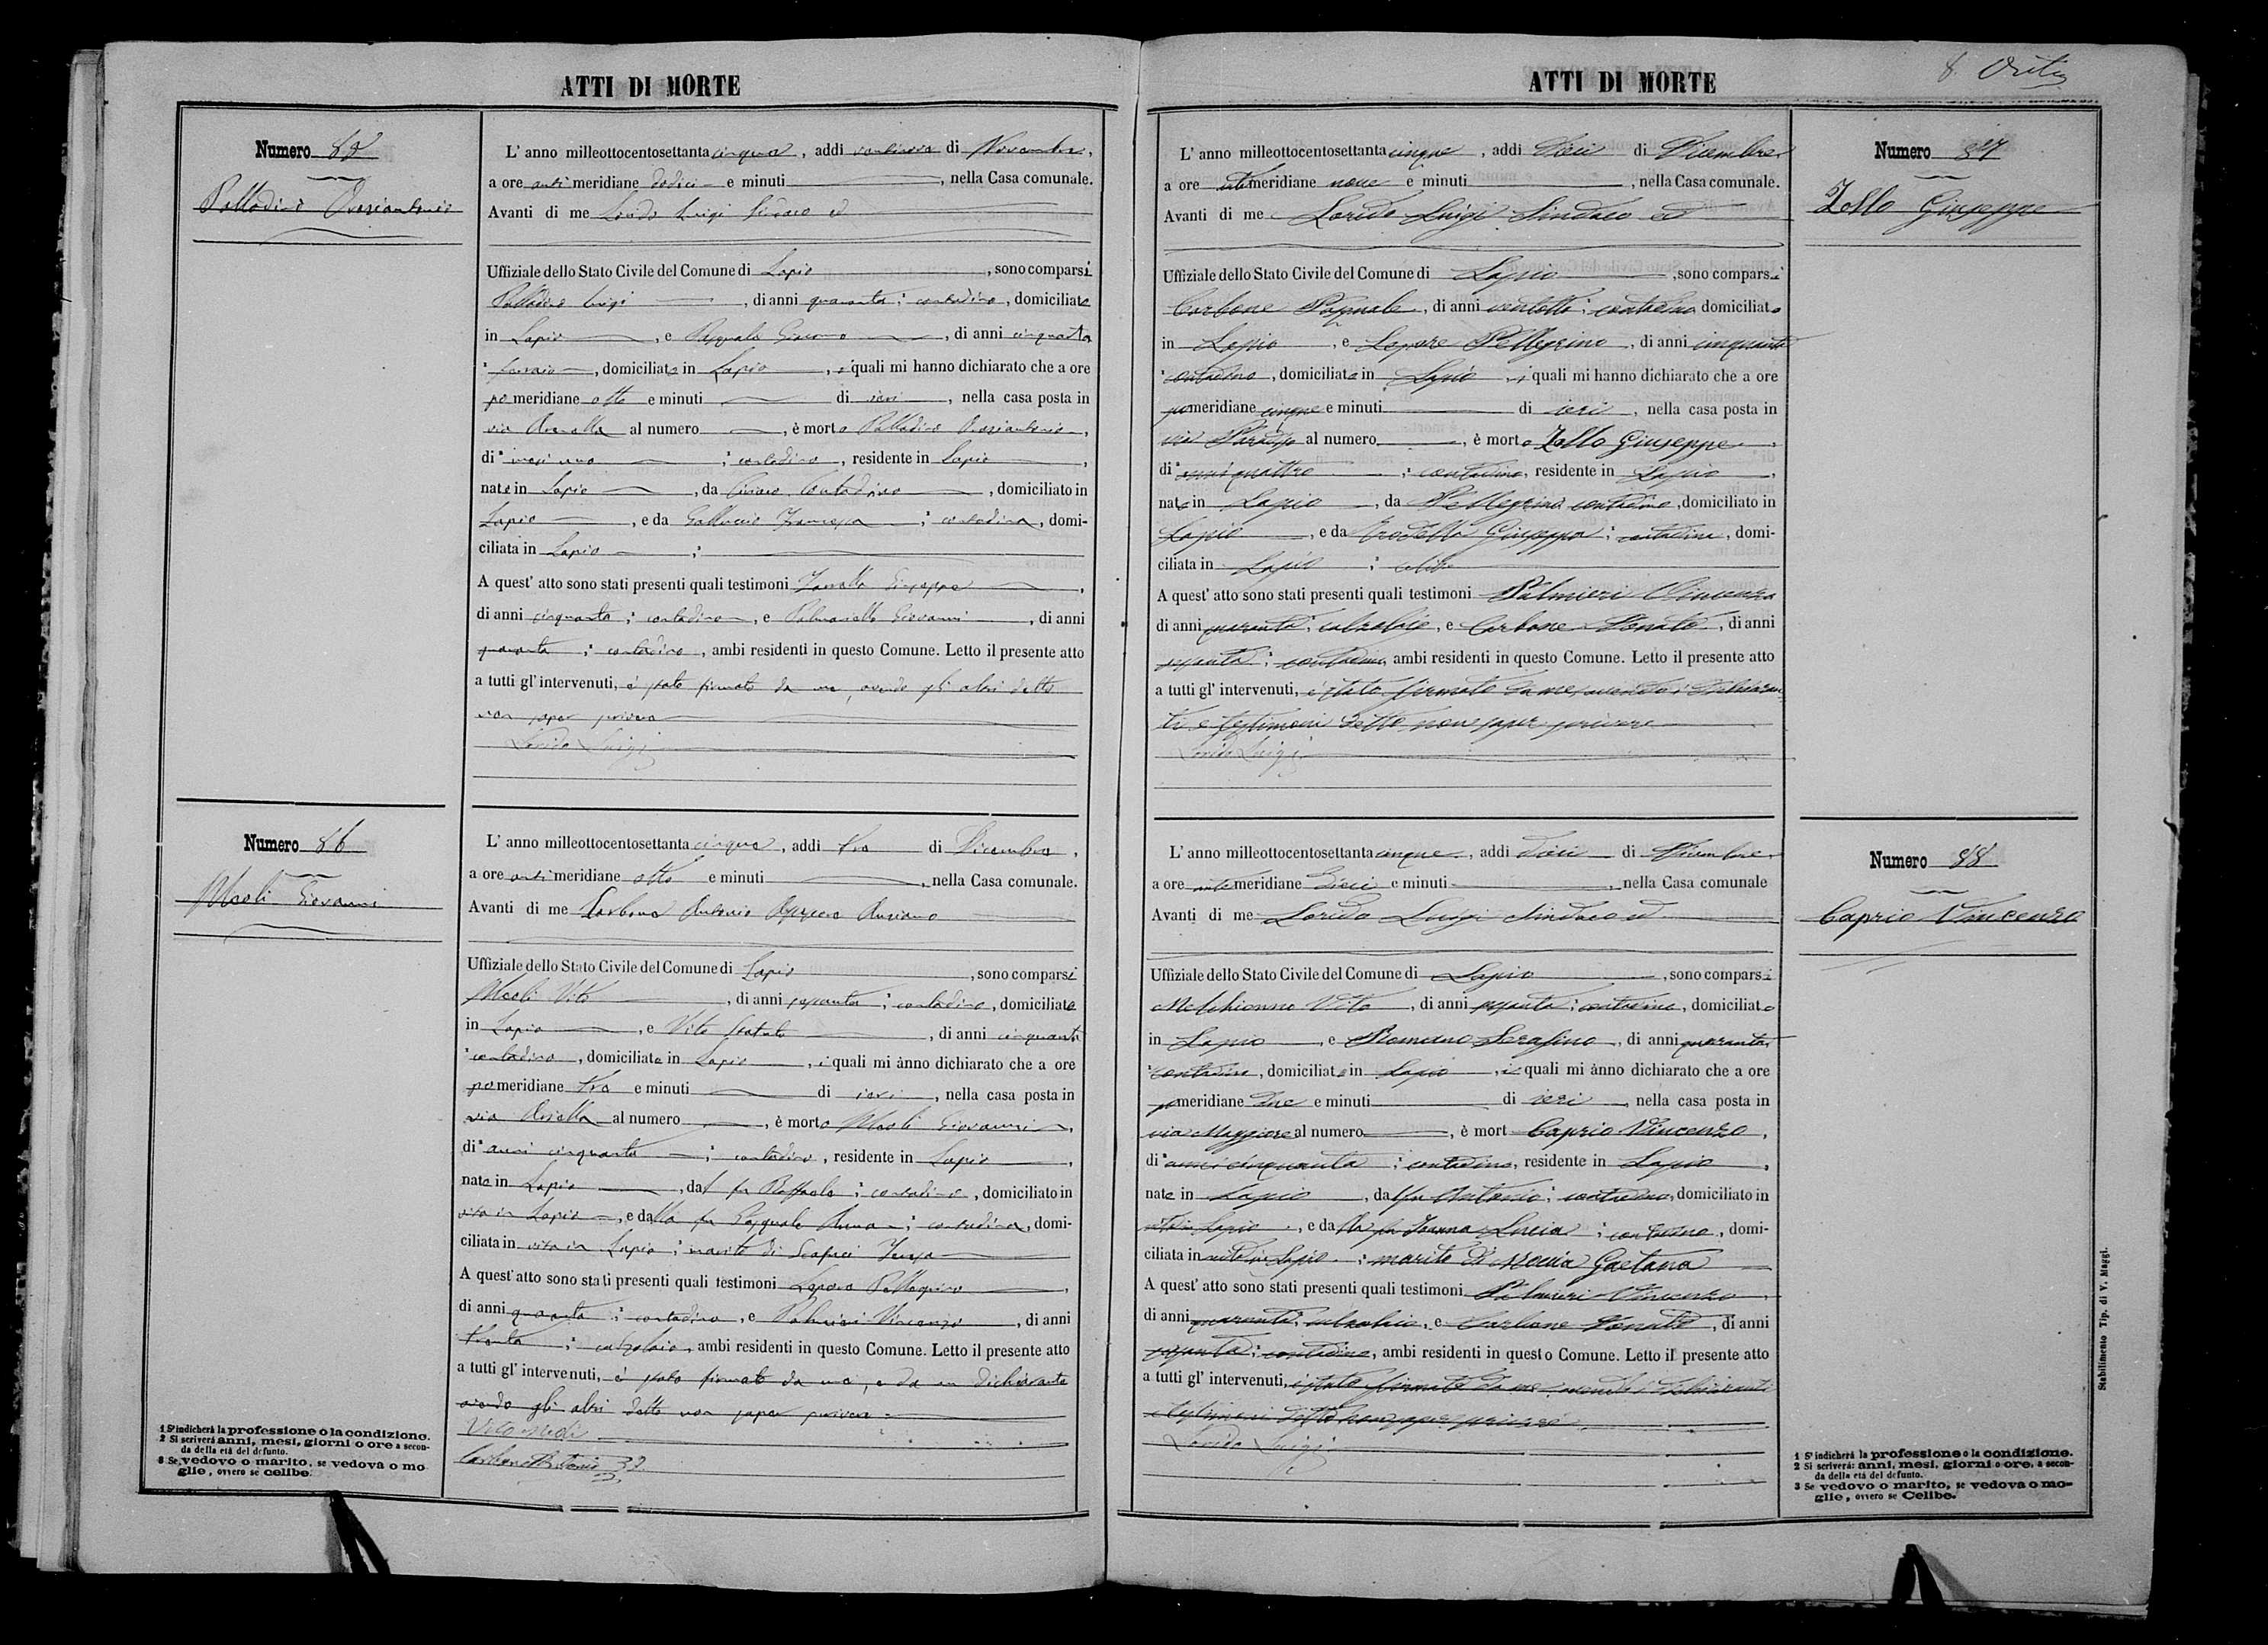 ATTI DI MORTE
Numero 85
Palladino
L' anno milleottocentosettanta cinque, addi ventinove di Novembre,
a ore anti meridiane dodici e minuti, nella Casa comunale.
Avanti di me Lorido Luigi Sindaco ed
Uffiziale dello Stato Civile del Comune di Lapio, sono comparsi
Palladino Luigi, di anni quaranta; contadino, domiciliato
in Lapio, e Pasquale Giacomo, di anni cinquanta
domiciliato in Lapio, i quali mi hanno dichiarato che a ore
po meridiane otto e minuti di ieri, nella casa posta in
via al numero, è morto Palladino
di mesi uno; contadino, residente in Lapio,
nato in Lapio, da Ciriaco contadino, domiciliato in
Lapio, e da Galluccio Francesca; contadina, domi-
ciliata in Lapio;
A quest' atto sono stati presenti quali testimoni Giuseppe,
di anni cinquanta; contadino, e Palmariello Giovanni, di anni
quaranta; contadino, ambi residenti in questo Comune. Letto il presente atto
a tutti gl' intervenuti, è stato firmato da me, avendo gli altri detto
non saper scrivere
Lorido Luigi
Numero 86
Giovanni
L' anno milleottocentosettanta cinque, addi tre di Dicembre,
a ore anti meridiane otto e minuti, nella Casa comunale.
Avanti di me Carbone Antonio Assessore Anziano
Uffiziale dello Stato Civile del Comune di Lapio, sono comparsi
Vito, di anni sessanta; contadino, domiciliato
in Lapio, e Vito, di anni cinquanta
contadino, domiciliato in Lapio, i quali mi ànno dichiarato che a ore
po meridiane tre e minuti di ieri, nella casa posta in
via al numero, è morto Giovanni,
di anni cinquanta; contadino, residente in Lapio,
nato in Lapio, dal fu Raffaele; contadino, domiciliato in
vita in Lapio, e dalla fu Pasquale Anna; contadina, domi-
ciliata in vita in Lapio; marito di
A quest' atto sono stati presenti quali testimoni Lepore Pellegrino,
di anni quaranta; contadino, e Palmieri Vincenzo, di anni
trenta; calzolaio, ambi residenti in questo Comune. Letto il presente atto
a tutti gl' intervenuti, è stato firmato da me, e da un dichiarante
avendo gli altri detto non saper scrivere
Carbone Antonio
1 S' indicherà la professione o la condizione.
2 Si scriverà anni, mesi, giorni o ore a secon-
da della età del defunto.
3 Se vedovo o marito, se vedova o mo
glie, ovvero se celibe.
ATTI DI MORTE
8.
Numero 87
Zollo Giuseppe
L' anno milleottocentosettanta cinque, addi dieci di Dicembre
a ore ante meridiane nove e minuti, nella Casa comunale.
Avanti di me Lorido Luigi Sindaco ed
Uffiziale dello Stato Civile del Comune di Lapio, sono comparsi
Carbone Pasquale, di anni ventotto; contadino domiciliato
in Lapio, e Lepore Pellegrino, di anni cinquanta
contadino, domiciliato in Lapio, i quali mi hanno dichiarato che a ore
po meridiane cinque e minuti di ieri, nella casa posta in
via Paradiso al numero, è morto Zollo Giuseppe,
di anni quattro; contadino, residente in Lapio,
nato in Lapio, da Pellegrino contadino, domiciliato in
Lapio, e da Giuseppa; contadina, domi-
ciliata in Lapio; celibe
A quest' atto sono stati presenti quali testimoni Palmieri Vincenzo
di anni quaranta; calzolaio, e Carbone Donato, di anni
sessanta; contadino, ambi residenti in questo Comune. Letto il presente atto
a tutti gl' intervenuti, è stato firmato da me, avendo i dichiaran-
ti e testimoni detto non saper scrivere
Lorido Luigi
Numero 88
Caprio Vincenzo
L' anno milleottocentosettanta cinque, addi dieci di Dicembre
a ore ante meridiane dieci e minuti, nella Casa comunale
Avanti di me Lorido Luigi Sindaco ed
Uffiziale dello Stato Civile del Comune di Lapio, sono comparsi
Melchionno Vito, di anni sessanta; contadino, domiciliato
in Lapio, e Romano Serafino, di anni quaranta
contadino, domiciliato in Lapio, i quali mi ànno dichiarato che a ore
po meridiane due e minuti di ieri, nella casa posta in
via Maggiore al numero, è mort Caprio Vincenzo,
di anni cinquanta; contadino, residente in Lapio,
nato in Lapio, dal fu Antonio; contadino, domiciliato in
vita in Lapio, e dalla fu Lucia; contadina, domi-
ciliata in vita in Lapio; marito di Gaetana
A quest' atto sono stati presenti quali testimoni Palmieri Vincenzo,
di anni quaranta; calzolaio, e Carbone Donato, di anni
sessanta; contadino, ambi residenti in questo Comune. Letto il presente atto
a tutti gl' intervenuti, è stato firmato da me, avendo i dichiaranti
e testimoni detto non saper scrivere
Lorido Luigi
1 S' indicherà la professione o la condizione.
2 Si scriverà: anni, mesi, giorni o ore, a secon-
da della età del defunto.
3 Se vedovo o marito, se vedova o mo-
glie, ovvero se Celibe.
Stabilimento Tip. di V. Maggi.